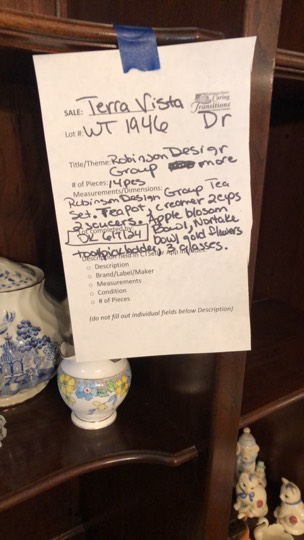 Caring
Transitions
SALE: Terra Vista
Dr
Lot #: WT 1946
Title/Theme: Robinson Design
Group more
# of Pieces: 14pcs
Measurements/Dimensions:
Robinson Design Group Tea
Set. Teapot, creamer 2cups
2 saucers. Apple blossom
Bowl, Noritake
DR 6/17/24
bowl gold flowers
toothpick holder, 3 glasses.
Description
Brand/Label/Maker
Measurements
Condition
# of Pieces
(do not fill out individual fields below Description)